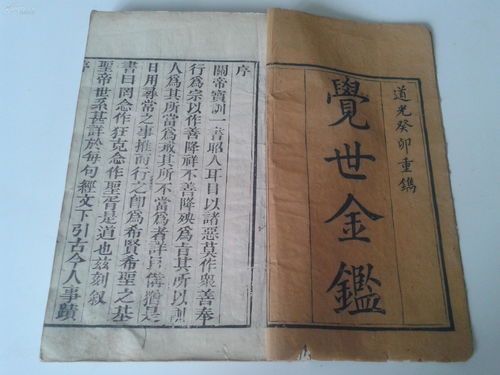 道光癸卯重鐫
覺世金鑑
序
關帝寶訓一書昭人耳目以諸惡莫作衆善奉
行為宗以作善降祥不善降殃為言其所以訓
人為其所當為戒其所不當為者詳且備猶是
日用尋常之事推而行之卽為希賢希聖之基
書曰罔念作狂克念作聖胥是道也兹刻叙
聖帝世系甚詳於每句經文下引古今人事蹟
序